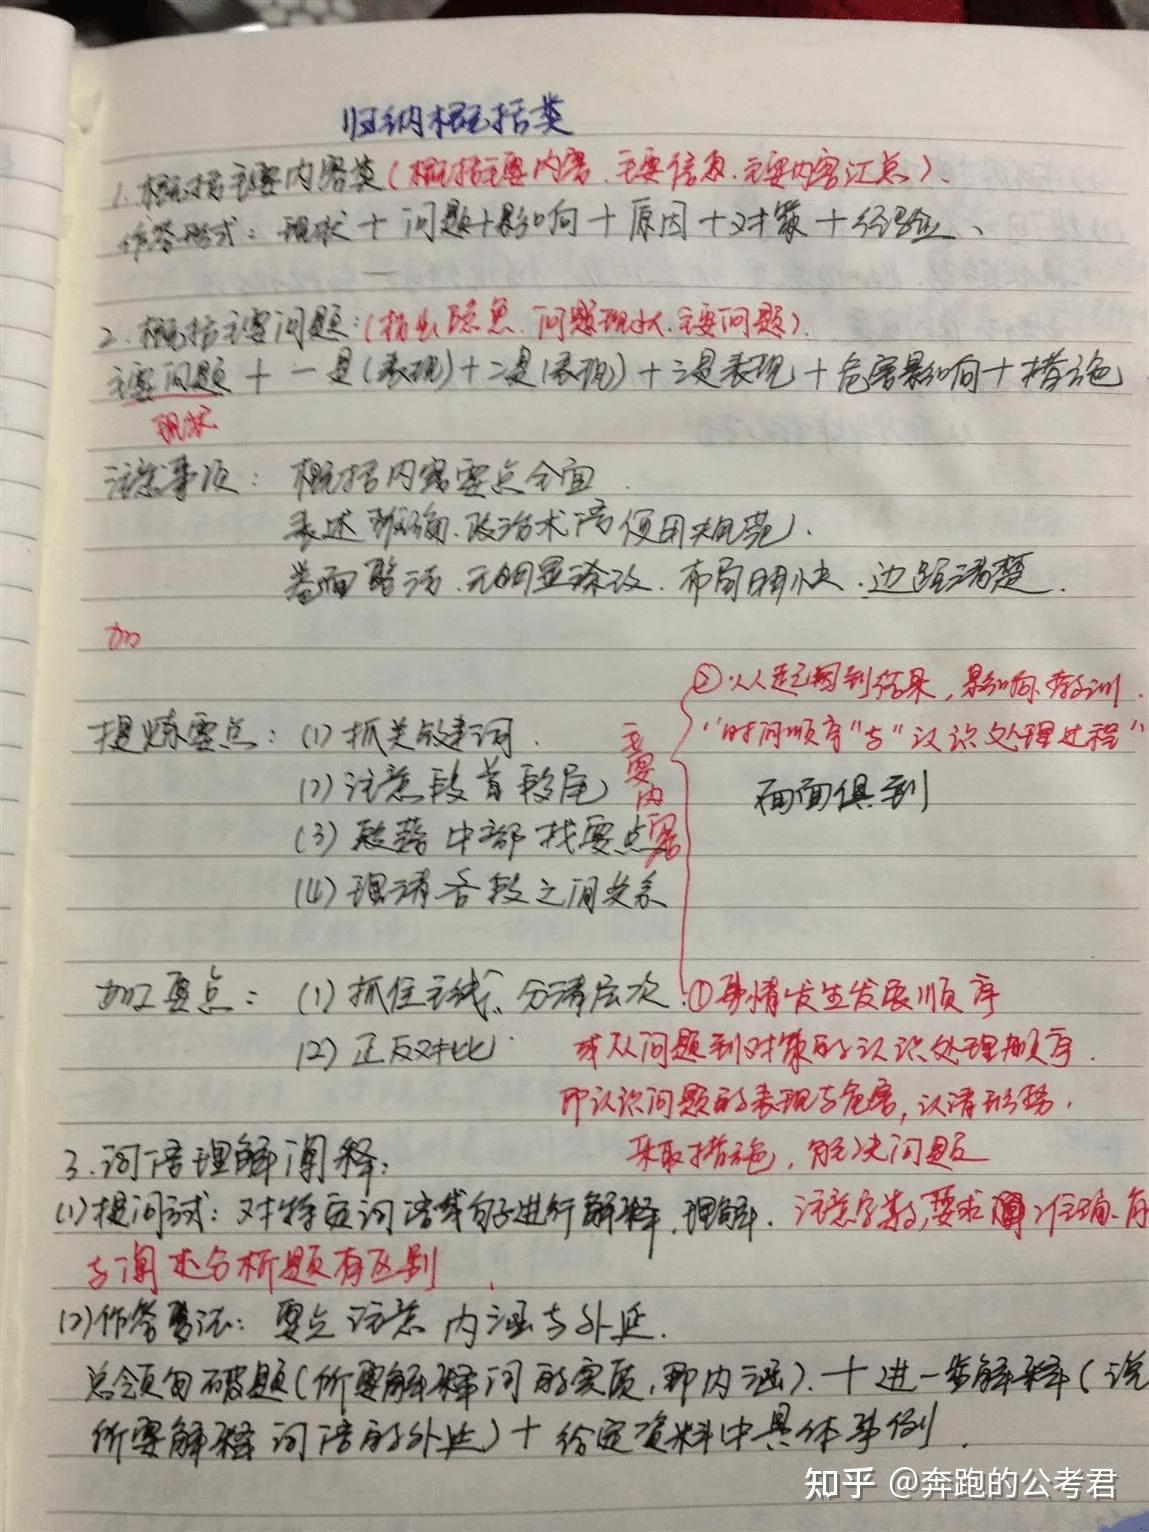 归纳概括类
1. 概括主要内容类(概括主要内容、主要信息、主要内容汇点)、
作答形式：现状＋问题＋影响＋原因＋对策＋经验、
2. 概括主要问题：(指出隐患、问题现状、主要问题).
主要问题＋一是(表现)＋二是(表现)＋三是表现＋危害影响＋措施
现状
注意事项：概括内容要点全面.
表述准确、政治术语使用规范.
卷面整洁、无明显涂改、布局明快、边距清楚.
加
②从起因到结果，影响、教训.
提炼要点：(1)抓关键词.
"时间顺序"与"认识处理过程"
(2)注意段首段尾
面面俱到
主要内容
(3)段落中部找要点
(4)理清各段之间关系
加工要点：(1)抓住主线、分清层次.①事情发生发展顺序
(2)正反对比
或从问题到对策的认识处理顺序.
即认识问题的表现与危害，认清形势，
采取措施，解决问题
3.词语理解阐释：
(1)提问试：对特定词语或句子进行解释、理解.注意字数，要求准确、
与阐述分析题有区别
(2)作答要法：要点注意内涵与外延.
总领句破题(所要解释词的实质，即内涵).＋进一步解释(说
所要解释词语的外延)＋给定资料中具体事例.
知乎 @奔跑的公考君